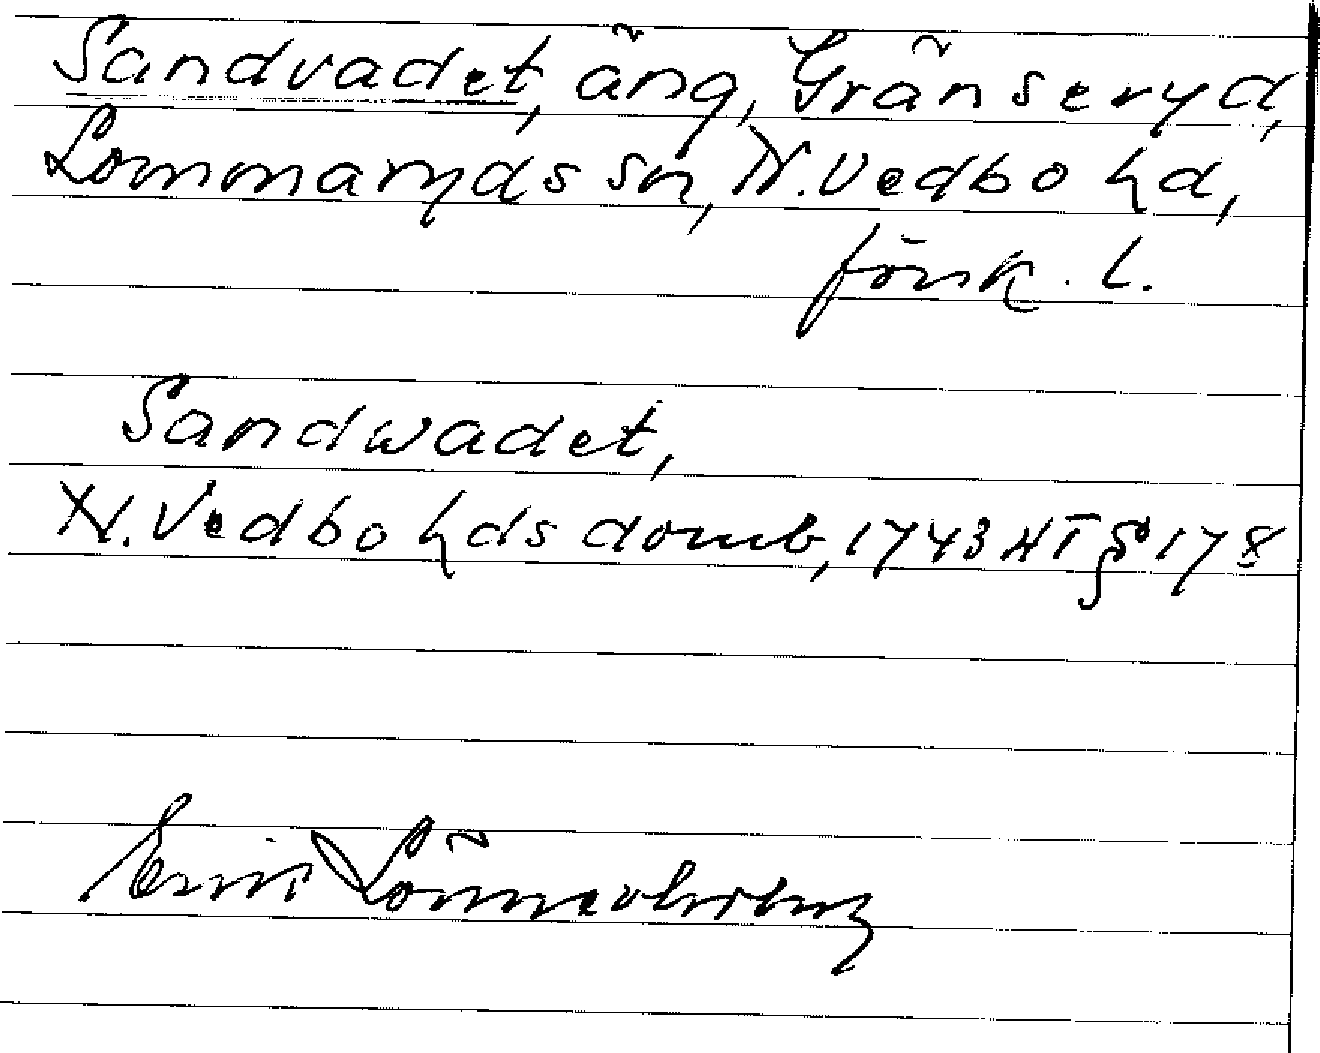 Sandvadet, äng, Gränseryd,
Lommaryds sn, N. Vedbo hd,
Jönk. l.
Sandwadet,
N. Vedbo hds domb, 1743 HT § 178
Erik Lönnerholm